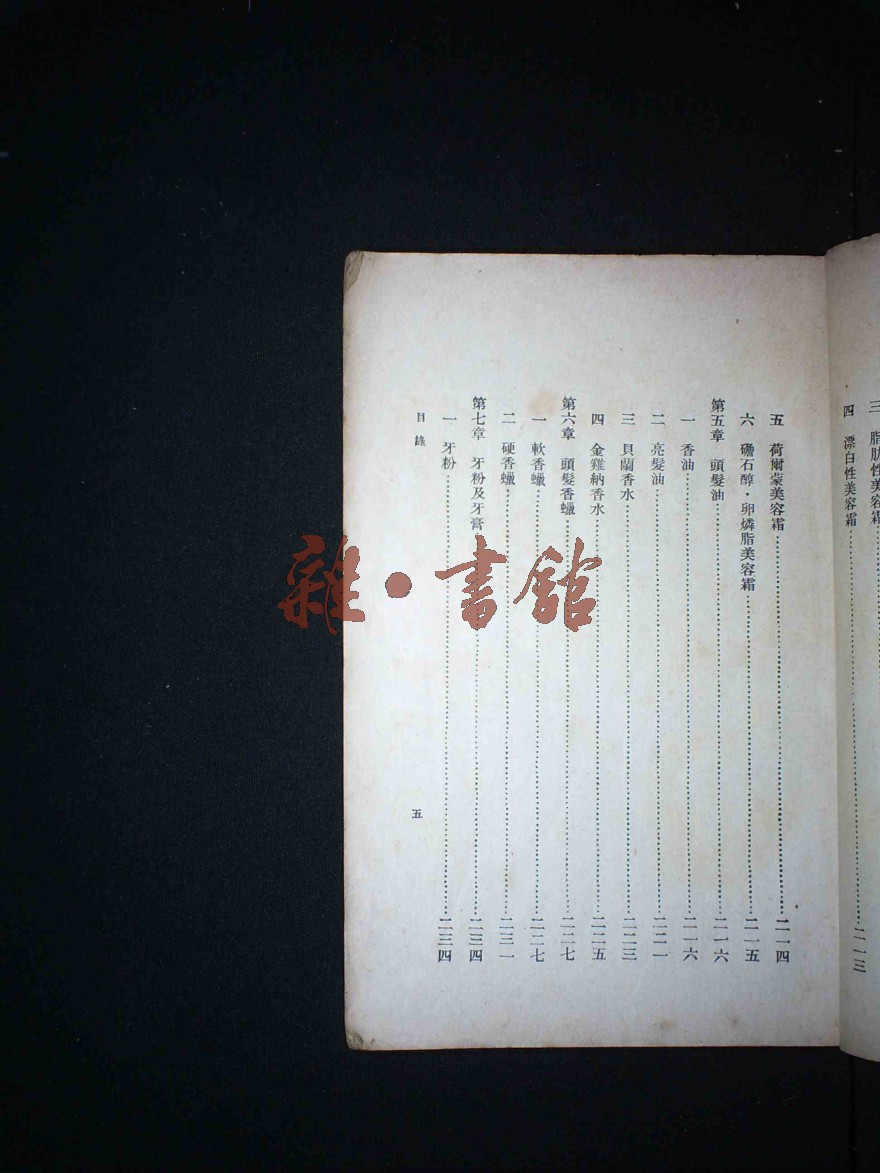 三　脂肪性美容霜
四　漂白性美容霜……二一三
五　荷爾蒙美容霜……二一四
六　磄石醇・卵燐脂美容霜……二一五
第五章　頭髮油……二一六
一　香油……二一六
二　亮髮油……二二一
三　貝蘭香水……二二三
四　金雞納香水……二二五
第六章　頭髮香蠟……二二七
一　軟香蠟……二二七
二　硬香蠟……二三一
第七章　牙粉及牙膏……二三四
一　牙粉……二三四
目錄
五
雜・書館